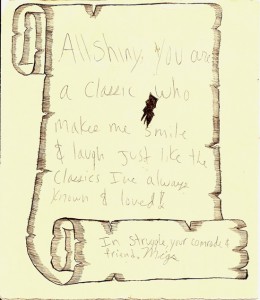 Allshiny, you are
a classic who
makes me smile
& laugh just like the
classics I've always
known & loved!
In struggle, your comrade &
friend,